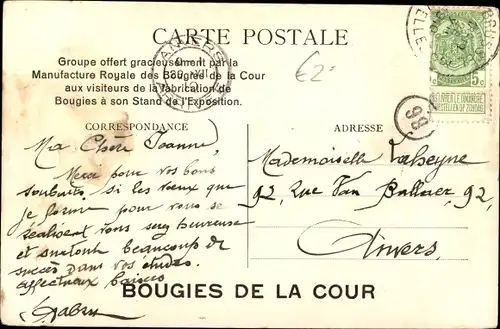 CARTE POSTALE
Groupe offert gracieusement par la
Manufacture Royale des Bougies de la Cour
aux visiteurs de la fabrication de
Bougies à son Stand de l'Exposition.
ANVERS
€2=
5c
98
CORRESPONDANCE
ADRESSE
Ma Chère Jeanne,
Merci pour vos bons
souhaits, si les vœux que
je forme pour vous se
réalisent vous serez heureuse
et surtout beaucoup de
succès dans vos études.
affectueux baisers
Mademoiselle Laheyne
92, rue Van Ballaer, 92,
Anvers.
BOUGIES DE LA COUR